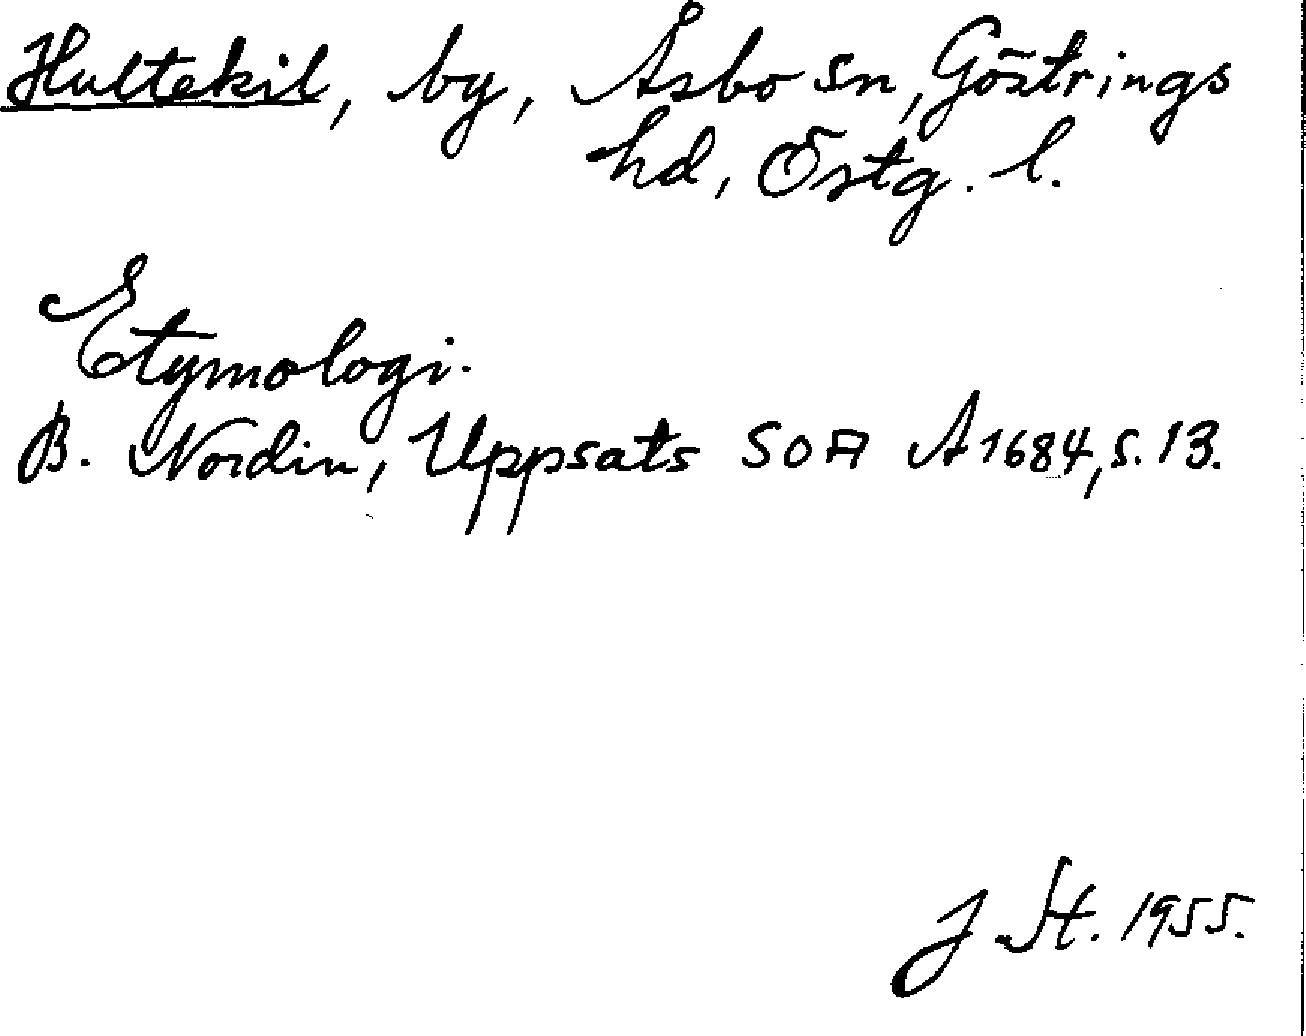 Hultekil, by, Åsbo sn, Göstrings
hd, Östg. l.
Etymologi.
B. Nordin, Uppsats SOA A1684, s. 13.
J. St. 1955.